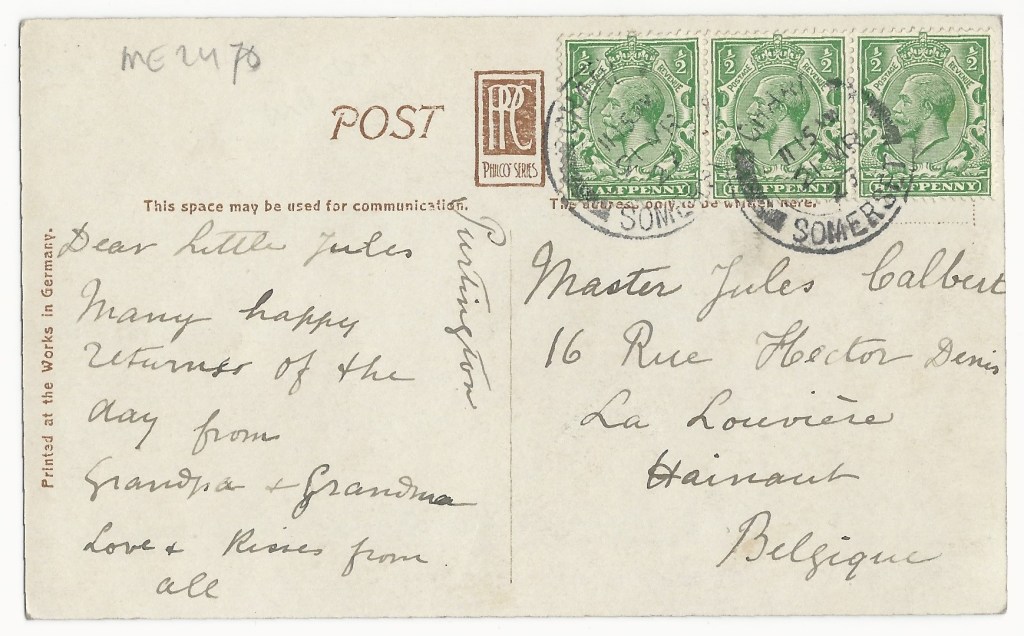 ME 2470
POST
PPC
PHILCO SERIES
This space may be used for communication.
The address only to be written here.
Printed at the Works in Germany.
1/2 POSTAGE REVENUE 1/2
HALFPENNY
1/2 POSTAGE REVENUE 1/2
HALFPENNY
1/2 POSTAGE REVENUE 1/2
HALFPENNY
CHARD
11 15 AM
SOMERSET
CHARD
11 15 AM
SOMERSET
Purtington
Dear Little Jules
Many happy
returns of the
day from
Grandpa + Grandma
Love + Kisses from
all
Master Jules Calbert
16 Rue Hector Denis
La Louvière
Hainaut
Belgique